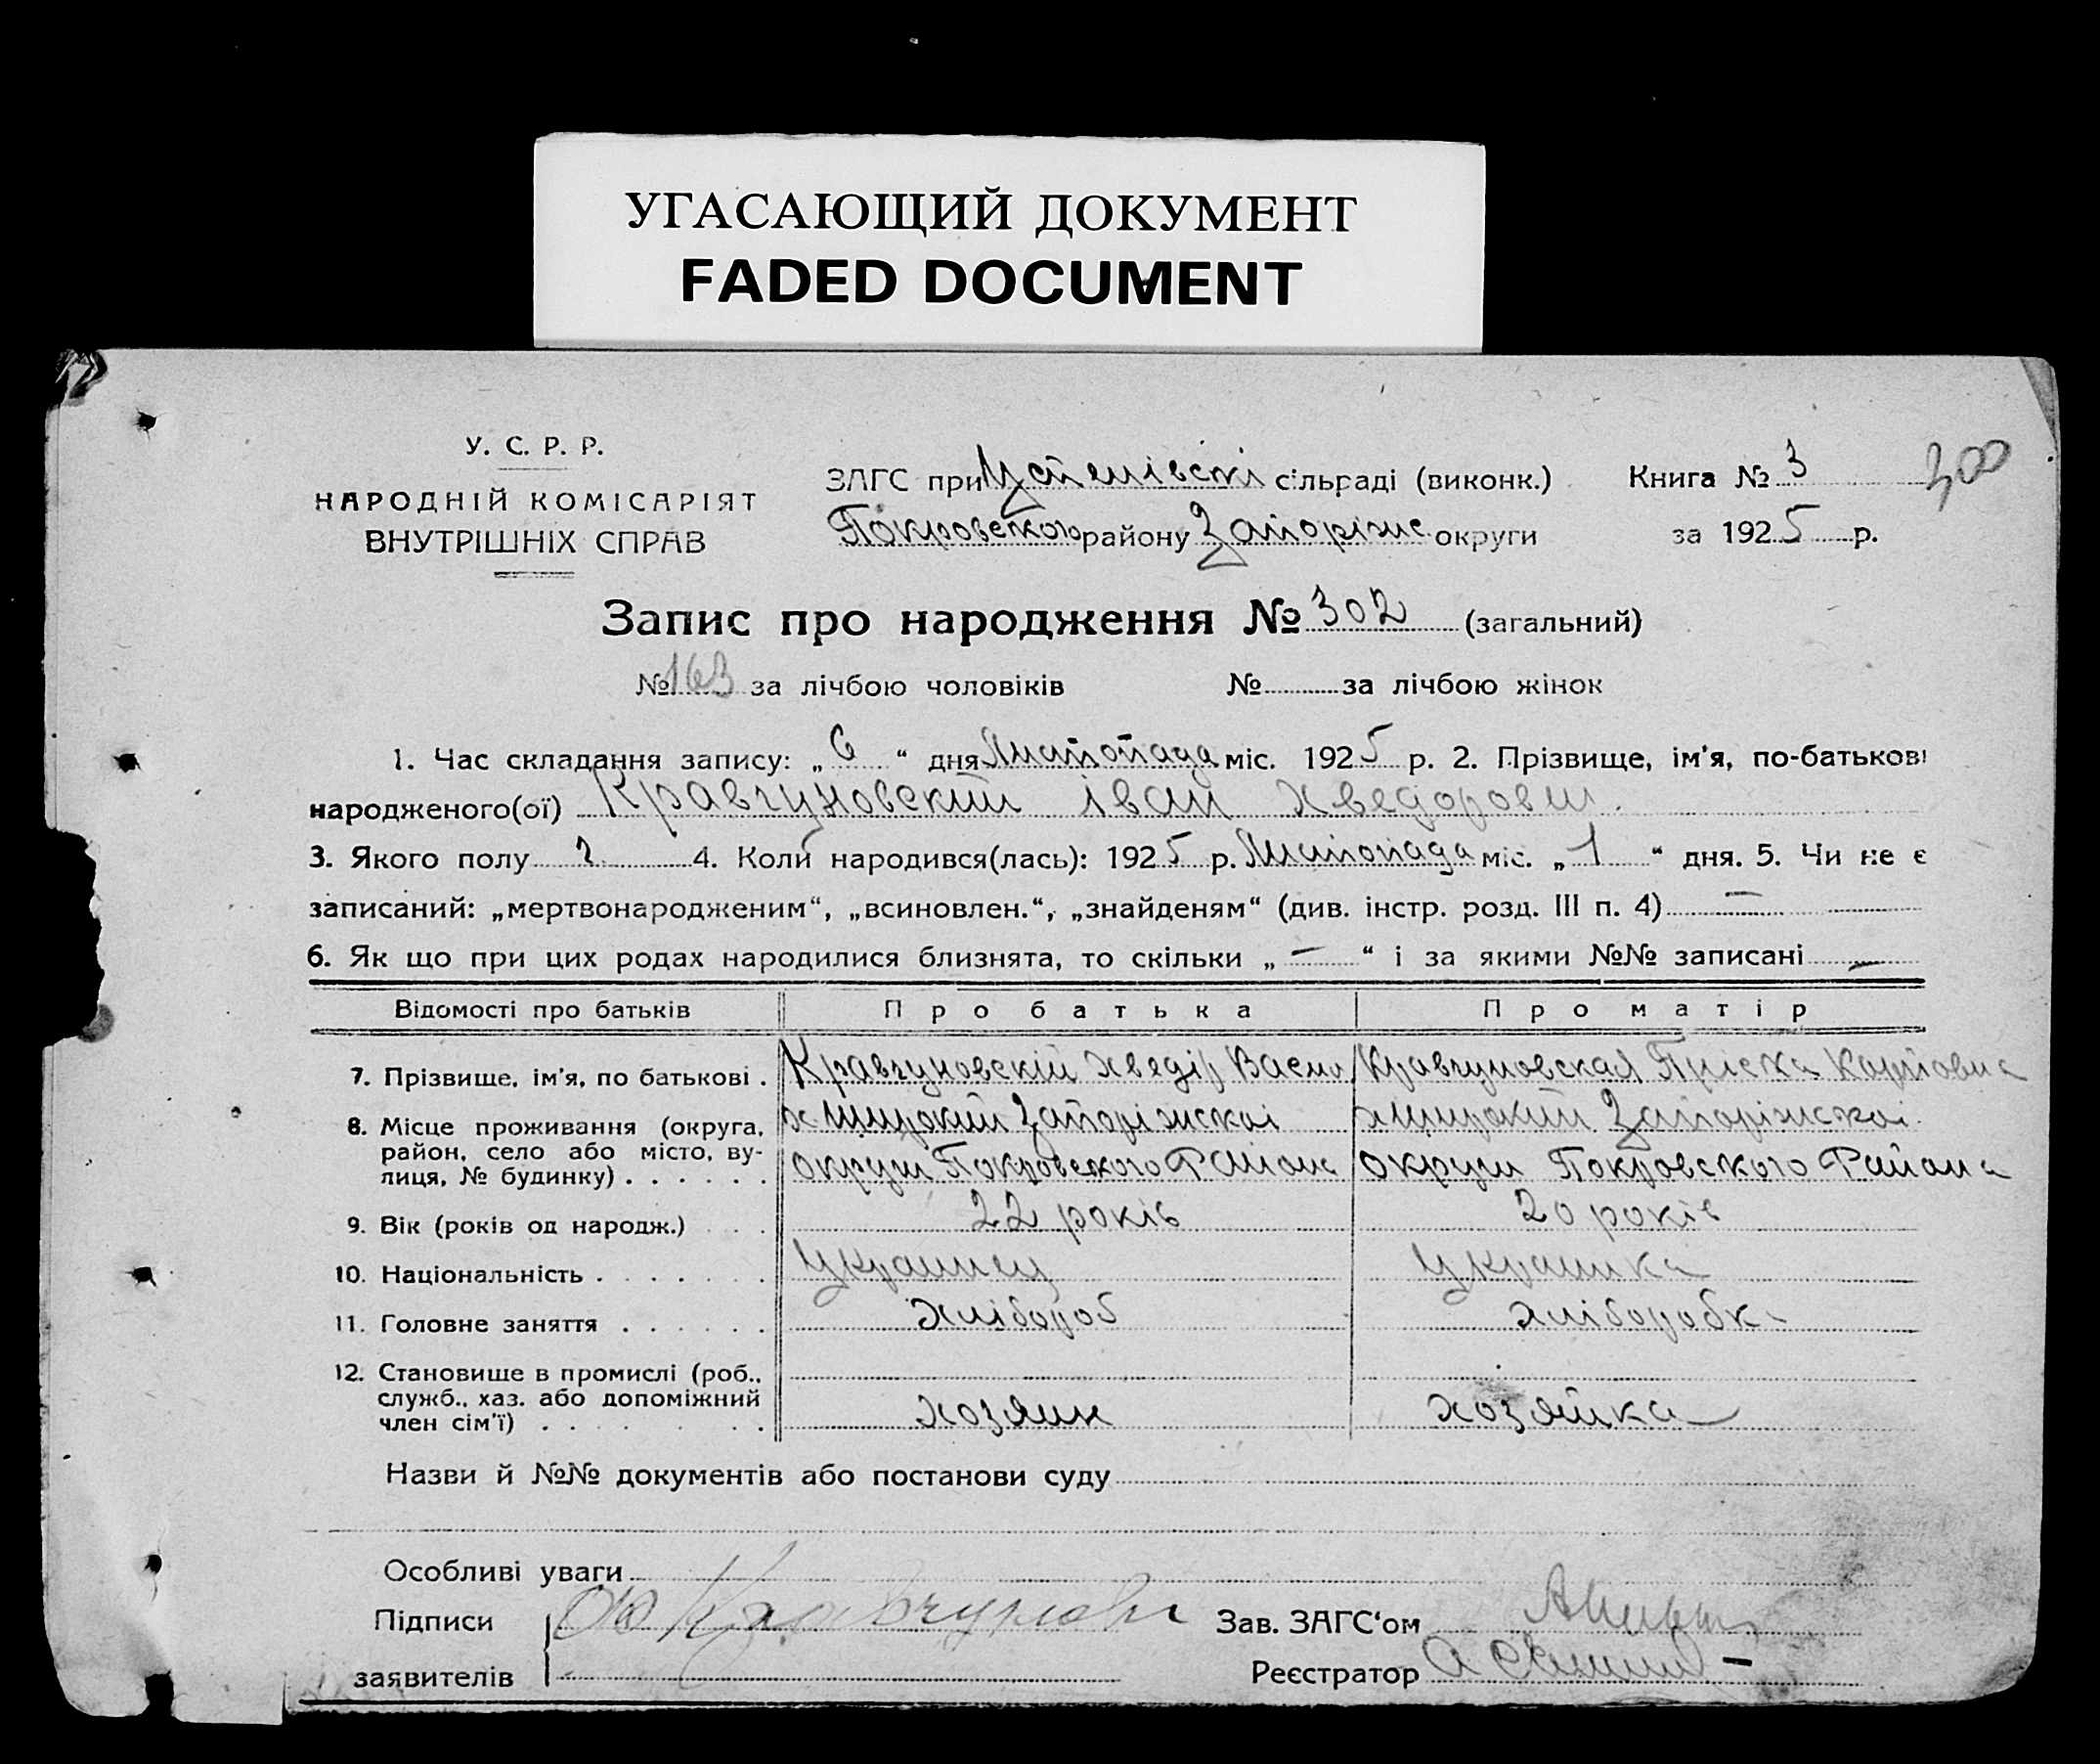 УГАСАЮЩИЙ ДОКУМЕНТ
FADED DOCUMENT
У. С. Р. Р.
НАРОДНІЙ КОМІСАРІЯТ
ВНУТРІШНІХ СПРАВ
ЗАГС при сільраді (виконк.)
Покровского району Запоріжс округи
Книга № 3
300
за 1925 р.
Запис про народження № 302 (загальний)
№ 163 за лічбою чоловіків № за лічбою жінок
1. Час складання запису: „ 6 “ дня Листопада міс. 1925 р. 2. Прізвище, ім'я, по-батькові
народженого(ої) Кравчуновский Іван Хведорович
3. Якого полу ч 4. Коли народився(лась): 1925 р. Листопада міс. „ 1 “ дня. 5. Чи не є
записаний: „мертвонародженим“, „всиновлен.“, „знайденям“ (див. інстр. розд. III п. 4) —
6. Як що при цих родах народилися близнята, то скільки „ — “ і за якими №№ записані —
Відомості про батьків Про батька Про матір
7. Прізвище, ім'я, по батькові . Кравчуновскій Хведір Васил Кравчуновская Пріська Карповна
8. Місце проживання (округа, район, село або місто, вулиця, № будинку) . . . . . .
х Запоріжскоі х Запоріжскоі
округи Покровского Району округи Покровского Района
9. Вік (років од народж.) . . . 22 років 20 років
10. Національність . . . . . . . Украинец Украинка
11. Головне заняття . . . . . . Хлібороб хліборобка
12. Становище в промислі (роб.,
служб., хаз. або допоміжний
член сім'ї) . . . . . . хозяин хозяйка
Назви й №№ документів або постанови суду
Особливі уваги
Підписи заявителів
Зав. ЗАГС'ом
Реєстратор